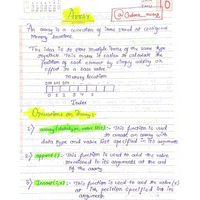 Array
@Coders_
An array is a collection of items stored at contiguous
Memory locations.
The idea is to store multiple items of the same type
together. This makes it easier to calculate the
position of each element by simply adding an
offset to a base value.
Memory location
200 201 202
0 1 2 3 4
Index
Operations on Array :-
1) array(data type, value list) :- This function is used
to create an array with
data type and value list specified in its arguments.
2) append() :- This function is used to add the value
mentioned in its arguments at the end
of the array.
3) Insert(i,x) :- This function is used to add the value(x)
at ith position specified in its
argument.